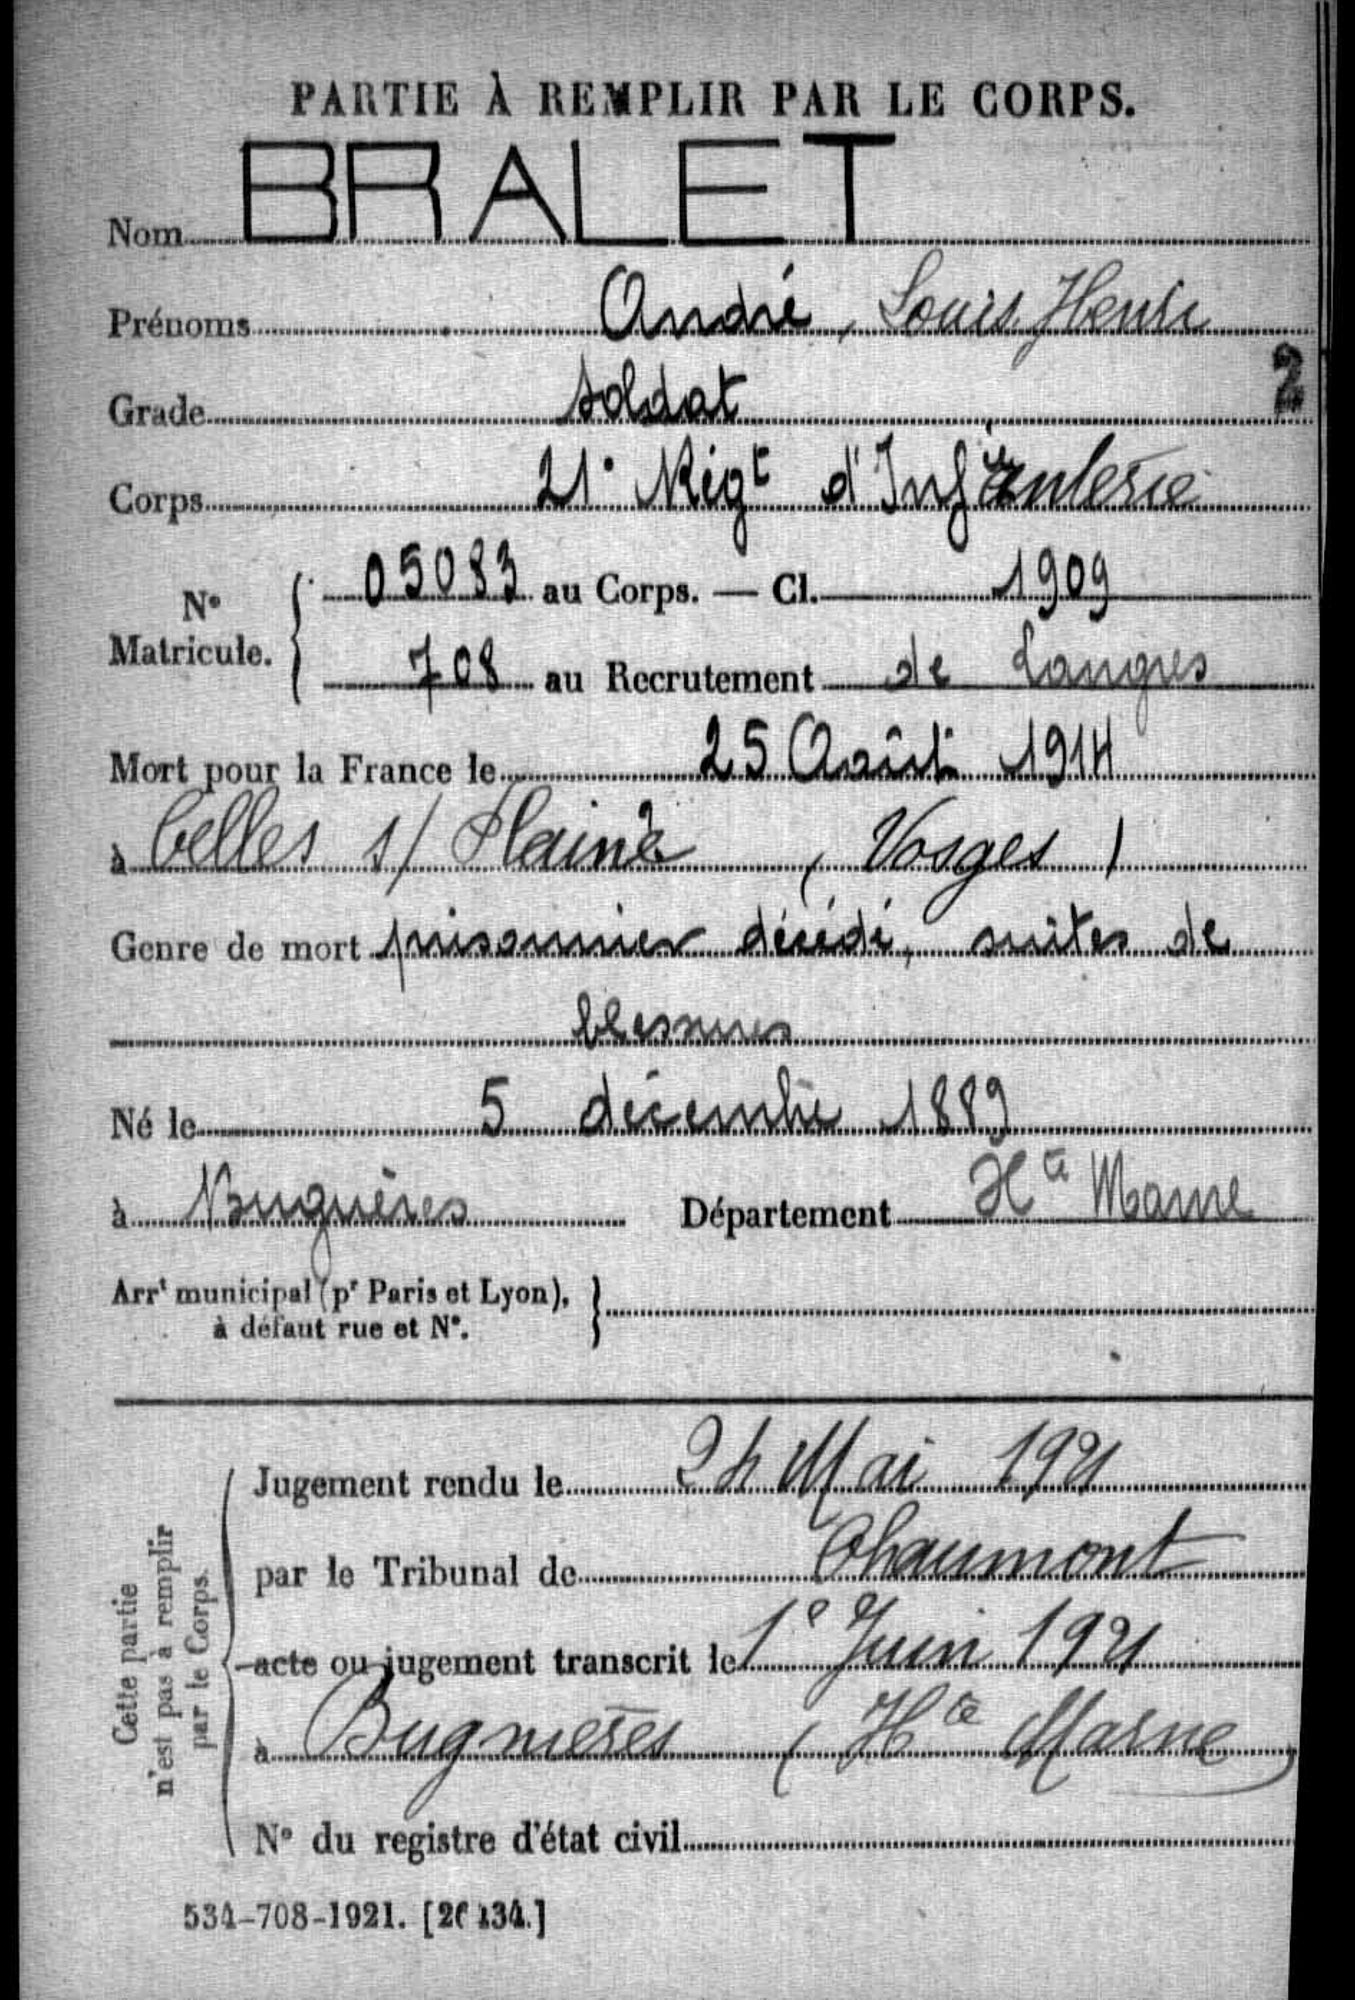 PARTIE À REMPLIR PAR LE CORPS.
Nom BRALET
Prénoms André, Louis Henri
Grade soldat
2
Corps 21e Régt d'Infanterie
No Matricule. { 05083 au Corps. — Cl. 1909
708 au Recrutement de Langres
Mort pour la France le 25 Août 1914
à Celles s/ Plaine (Vosges)
Genre de mort prisonnier décédé, suites de
blessures
Né le 5 décembre 1889
à Buguères Département Hte Marne
Arrt municipal (pr Paris et Lyon),
à défaut rue et N°. }
Cette partie
n'est pas à remplir
par le Corps.
Jugement rendu le 24 Mai 1921
par le Tribunal de Chaumont
acte ou jugement transcrit le 1e Juin 1921
à Bugnières (Hte Marne)
N° du registre d'état civil
534-708-1921. [26134.]